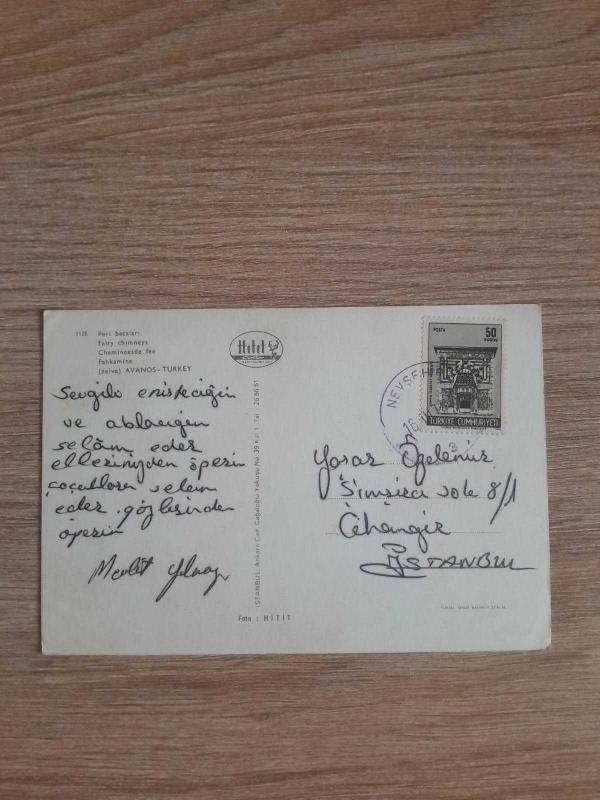 1128 Peri bacaları
Fairy chimneys
Cheminéesde fee
Fehkamine
(zelve) AVANOS - TURKEY
Hitit
Sevgili enişteciğim
ve ablacığım
selâm eder
ellerinizden öperim
çocuklara selam
eder gözlerinden
öperim
Mevlüt Yılmaz
Foto : HİTİT
İSTANBUL: Ankara Cad. Cağaloğlu Yokuşu No. 39 Kat 1 Tel: 26 86 51
POSTA 50 KURUŞ
TÜRKİYE CUMHURİYETİ
NEVŞEHİR
Yaşar
Şimşirci sok 8/1
Cihangir
İSTANBUL